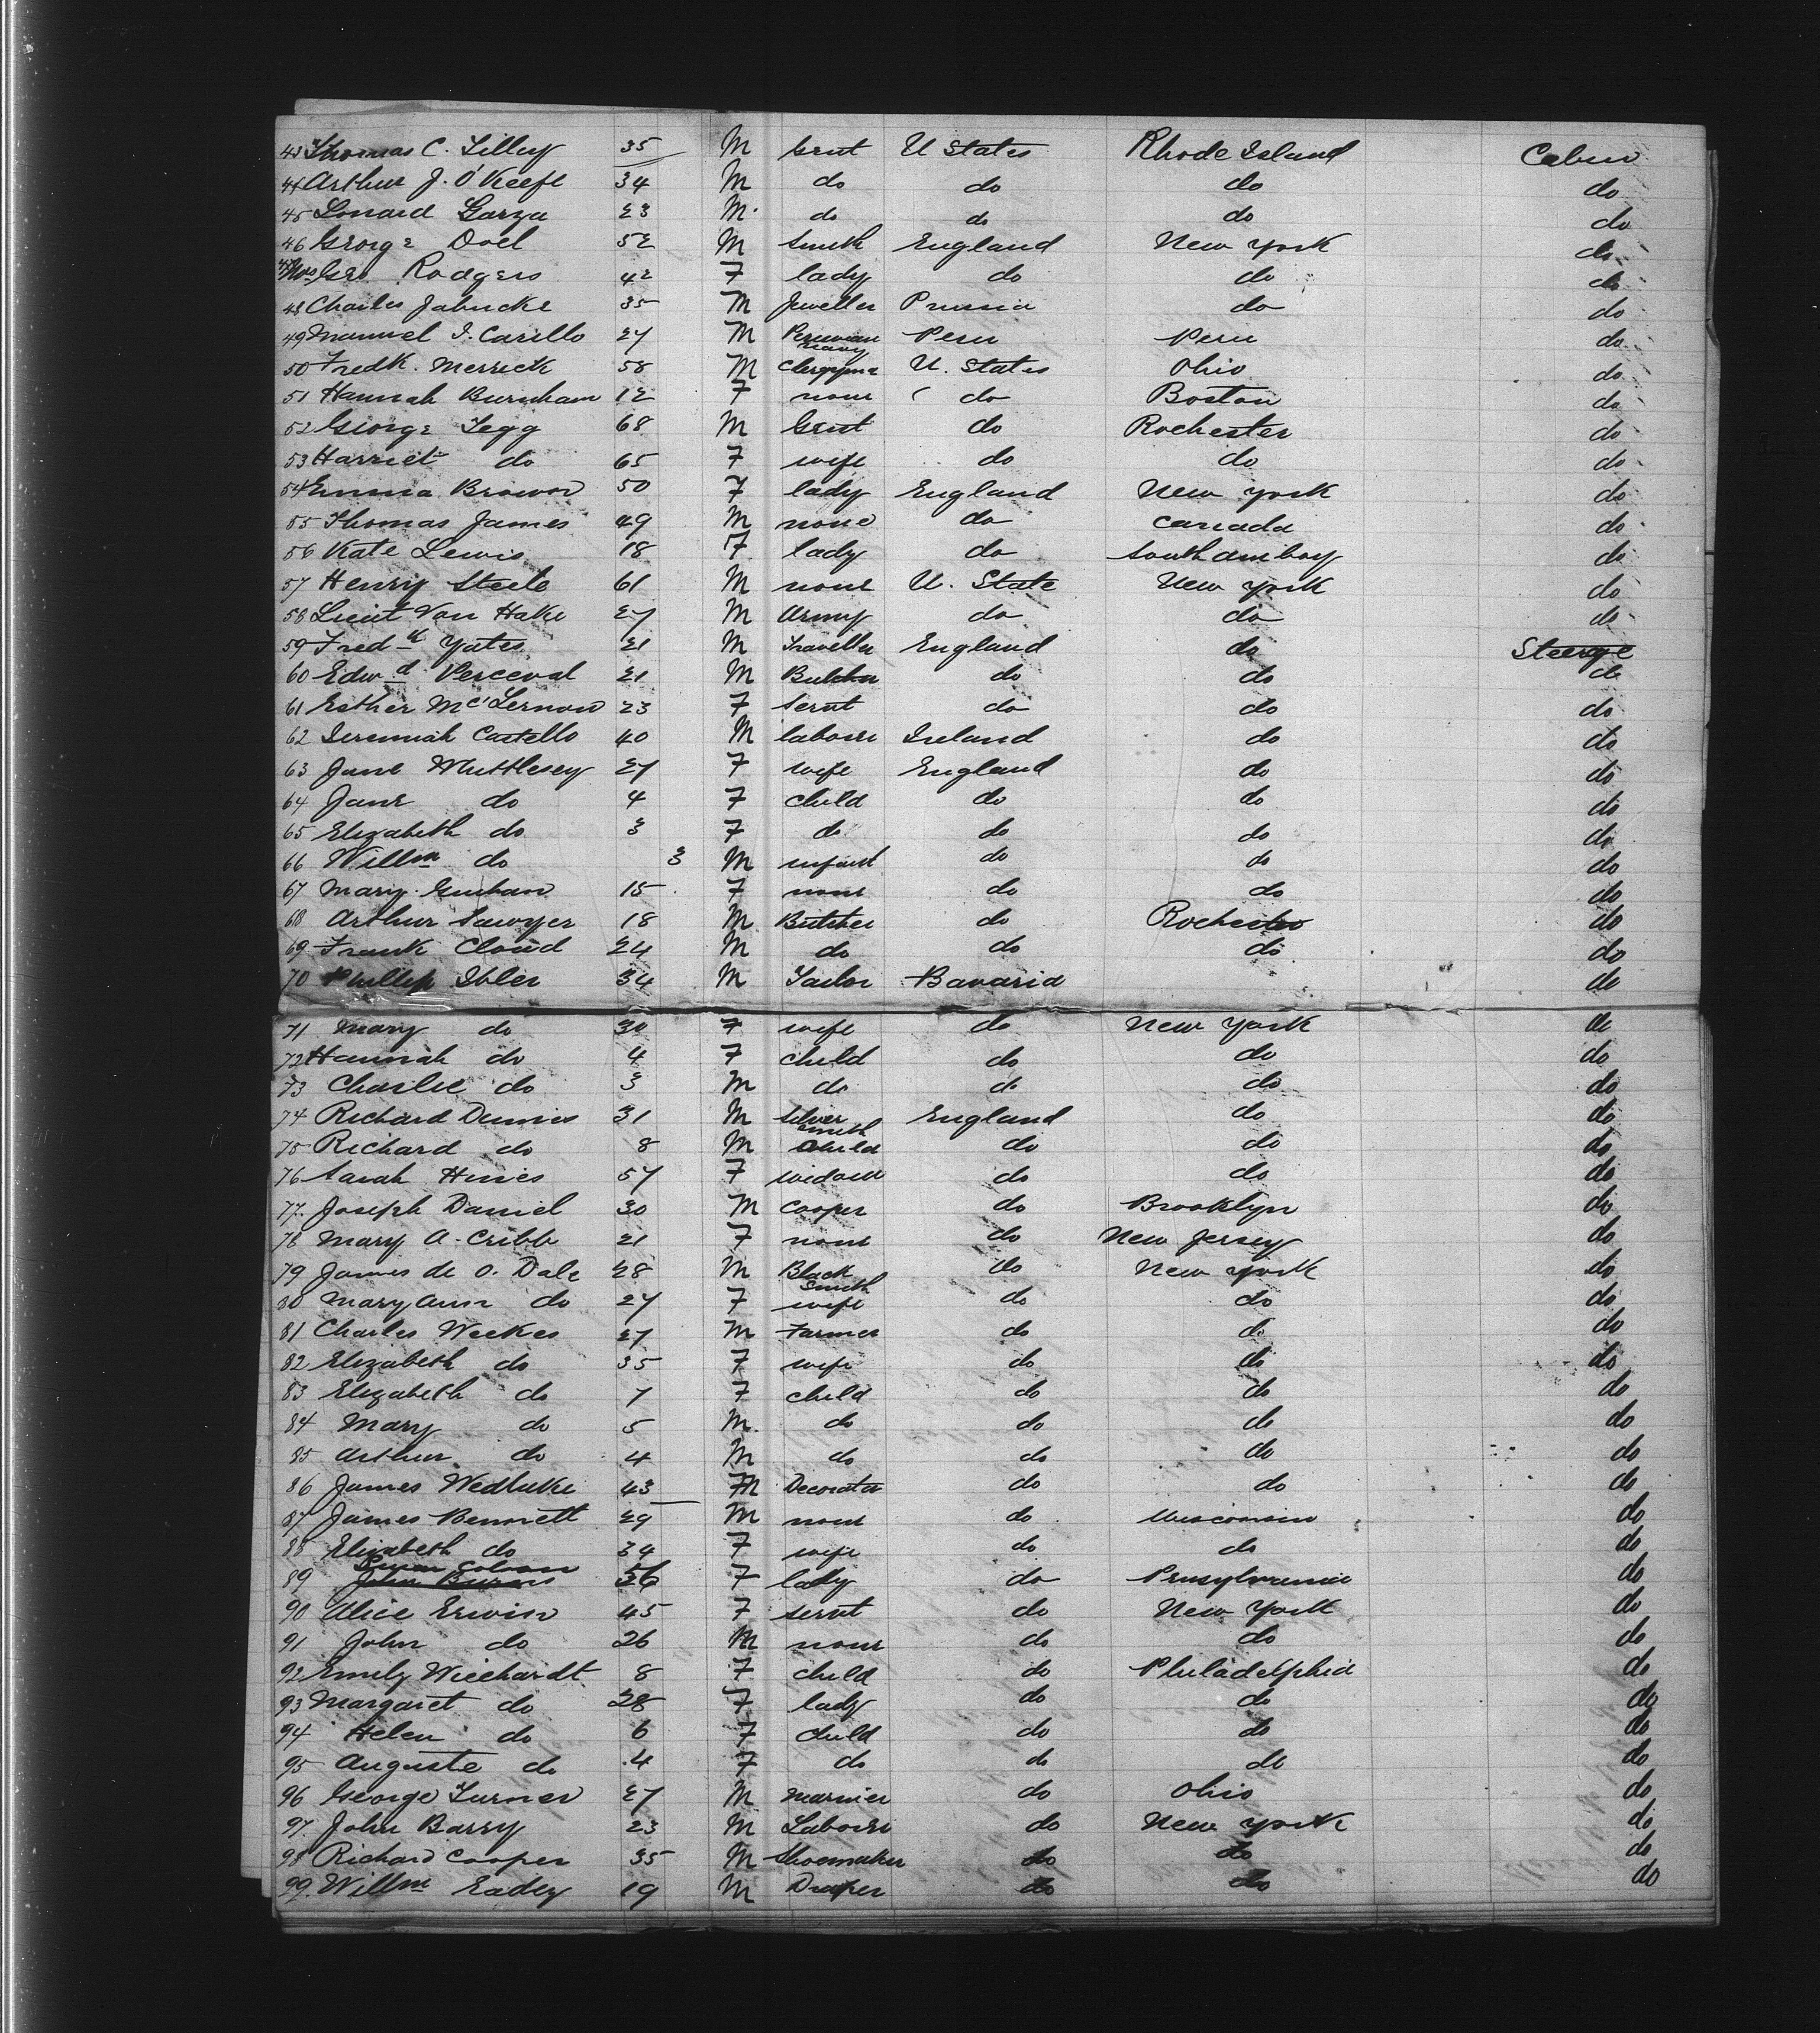 43 Thomas C. Tilley 35 M Gent U States Rhode Island Cabin
44 Arthur J. O'Keefe 34 M do do do do
45 Lonard Garza 23 M do do do do
46 George Doel 52 M Smith England New York do
47 Mrs Geo Rodgers 42 F lady do do do
48 Charles Jahncke 35 M Jeweller Prussia do do
49 Manuel I. Carillo 27 M Peruvian Navy Peru Peru do
50 Fredk. Merrick 58 M U. States Ohio do
51 Hannah Burnham 12 F none do Boston do
52 George Tegg 68 M Gent do Rochester do
53 Harriet do 65 F wife do do do
54 Emma Brown 50 F lady England New York do
55 Thomas James 49 M none do Canada do
56 Kate Lewis 18 F lady do South amboy do
57 Henry Steele 61 M none U. State New York do
58 Lieut Van Hake 27 M Army do do do
59 Fredk Yates 21 M Traveller England do Steerge
60 Edwd Perceval 21 M Butcher do do do
61 Esther McLernon 23 F Servt do do do
62 Jeremiah Castello 40 M laborer Ireland do do
63 Jane Whittlesey 27 F wife England do do
64 Jane do 4 F child do do do
65 Elizabeth do 3 F do do do do
66 Willm do 3 M infant do do do
67 Mary 15 F none do do do
68 Arthur Sawyer 18 M Butcher do Rochester do
69 Frank Cloud 24 M do do do do
70 Phillip Ibler 34 M Tailor Bavaria do
71 Mary do 30 F wife do New York do
72 Hannah do 4 F child do do do
73 Charlie do 3 M do do do do
74 Richard Dennis 31 M Silver Smith England do do
75 Richard do 8 M Child do do do
76 Sarah Hines 57 F widow do do do
77 Joseph Daniel 30 M Cooper do Brooklyn do
78 Mary A. Cribb 21 F none do New Jersey do
79 James de O. Dale 28 M Black Smith do New York do
80 Mary Ann do 27 F wife do do do
81 Charles Weekes 27 M Farmer do do do
82 Elizabeth do 35 F wife do do do
83 Elizabeth do 7 F child do do do
84 Mary do 5 M do do do do
85 Arthur do 4 M do do do do
86 James Wedlake 43 M Decorator do do do
87 James Bennett 29 M none do Wisconsin do
88 Elizabeth do 34 F wife do do do
89 F lady do Pensylvania do
90 Alice Erwin 45 F servt do New York do
91 John do 26 M none do do do
92 Emily Wiechardt 8 F child do Philadelphia do
93 Margaret do 28 F lady do do do
94 Helen do 6 F child do do do
95 Auguste do 4 F do do do do
96 George Turner 27 M marnier do Ohio do
97 John Barry 23 M Laborer do New York do
98 Richard Cooper 35 M Shoemaker do do do
99 Willm Eadey 19 M Draper do do do